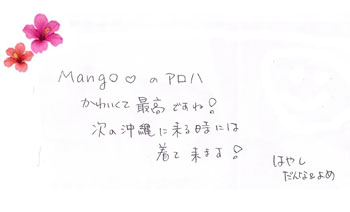 Mango♡のアロハ
かわいくて最高ですね!
次の沖縄に来る時には
着て来ます!
はやし
だんな&よめ